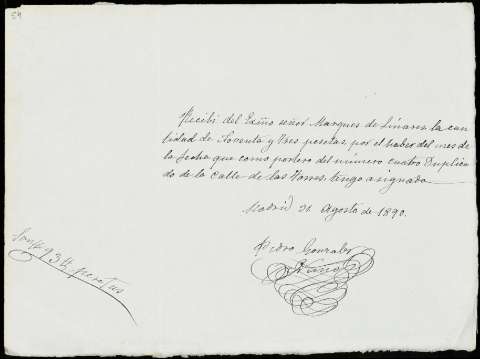 59
Recibi del Exmo señor Marques de Linares la can
tidad de Sesenta y Tres pesetas, por el haber del mes de
la fecha que como portero del número cuatro Duplica
do de la Calle de las Torres, tengo asignado
Madrid 31 Agosto de 1890.
Pedro Gonzalez
Son pesetas